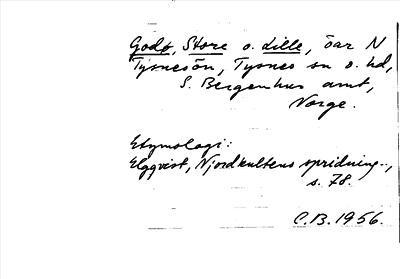 Godö, Store o. Lille, öar N
Tysnesön, Tysnes sn o. hd,
S. Bergenhus amt,
Norge.
Etymologi:
Elgqvist, Njordkultens spridning..,
s. 78.
C.B. 1956.